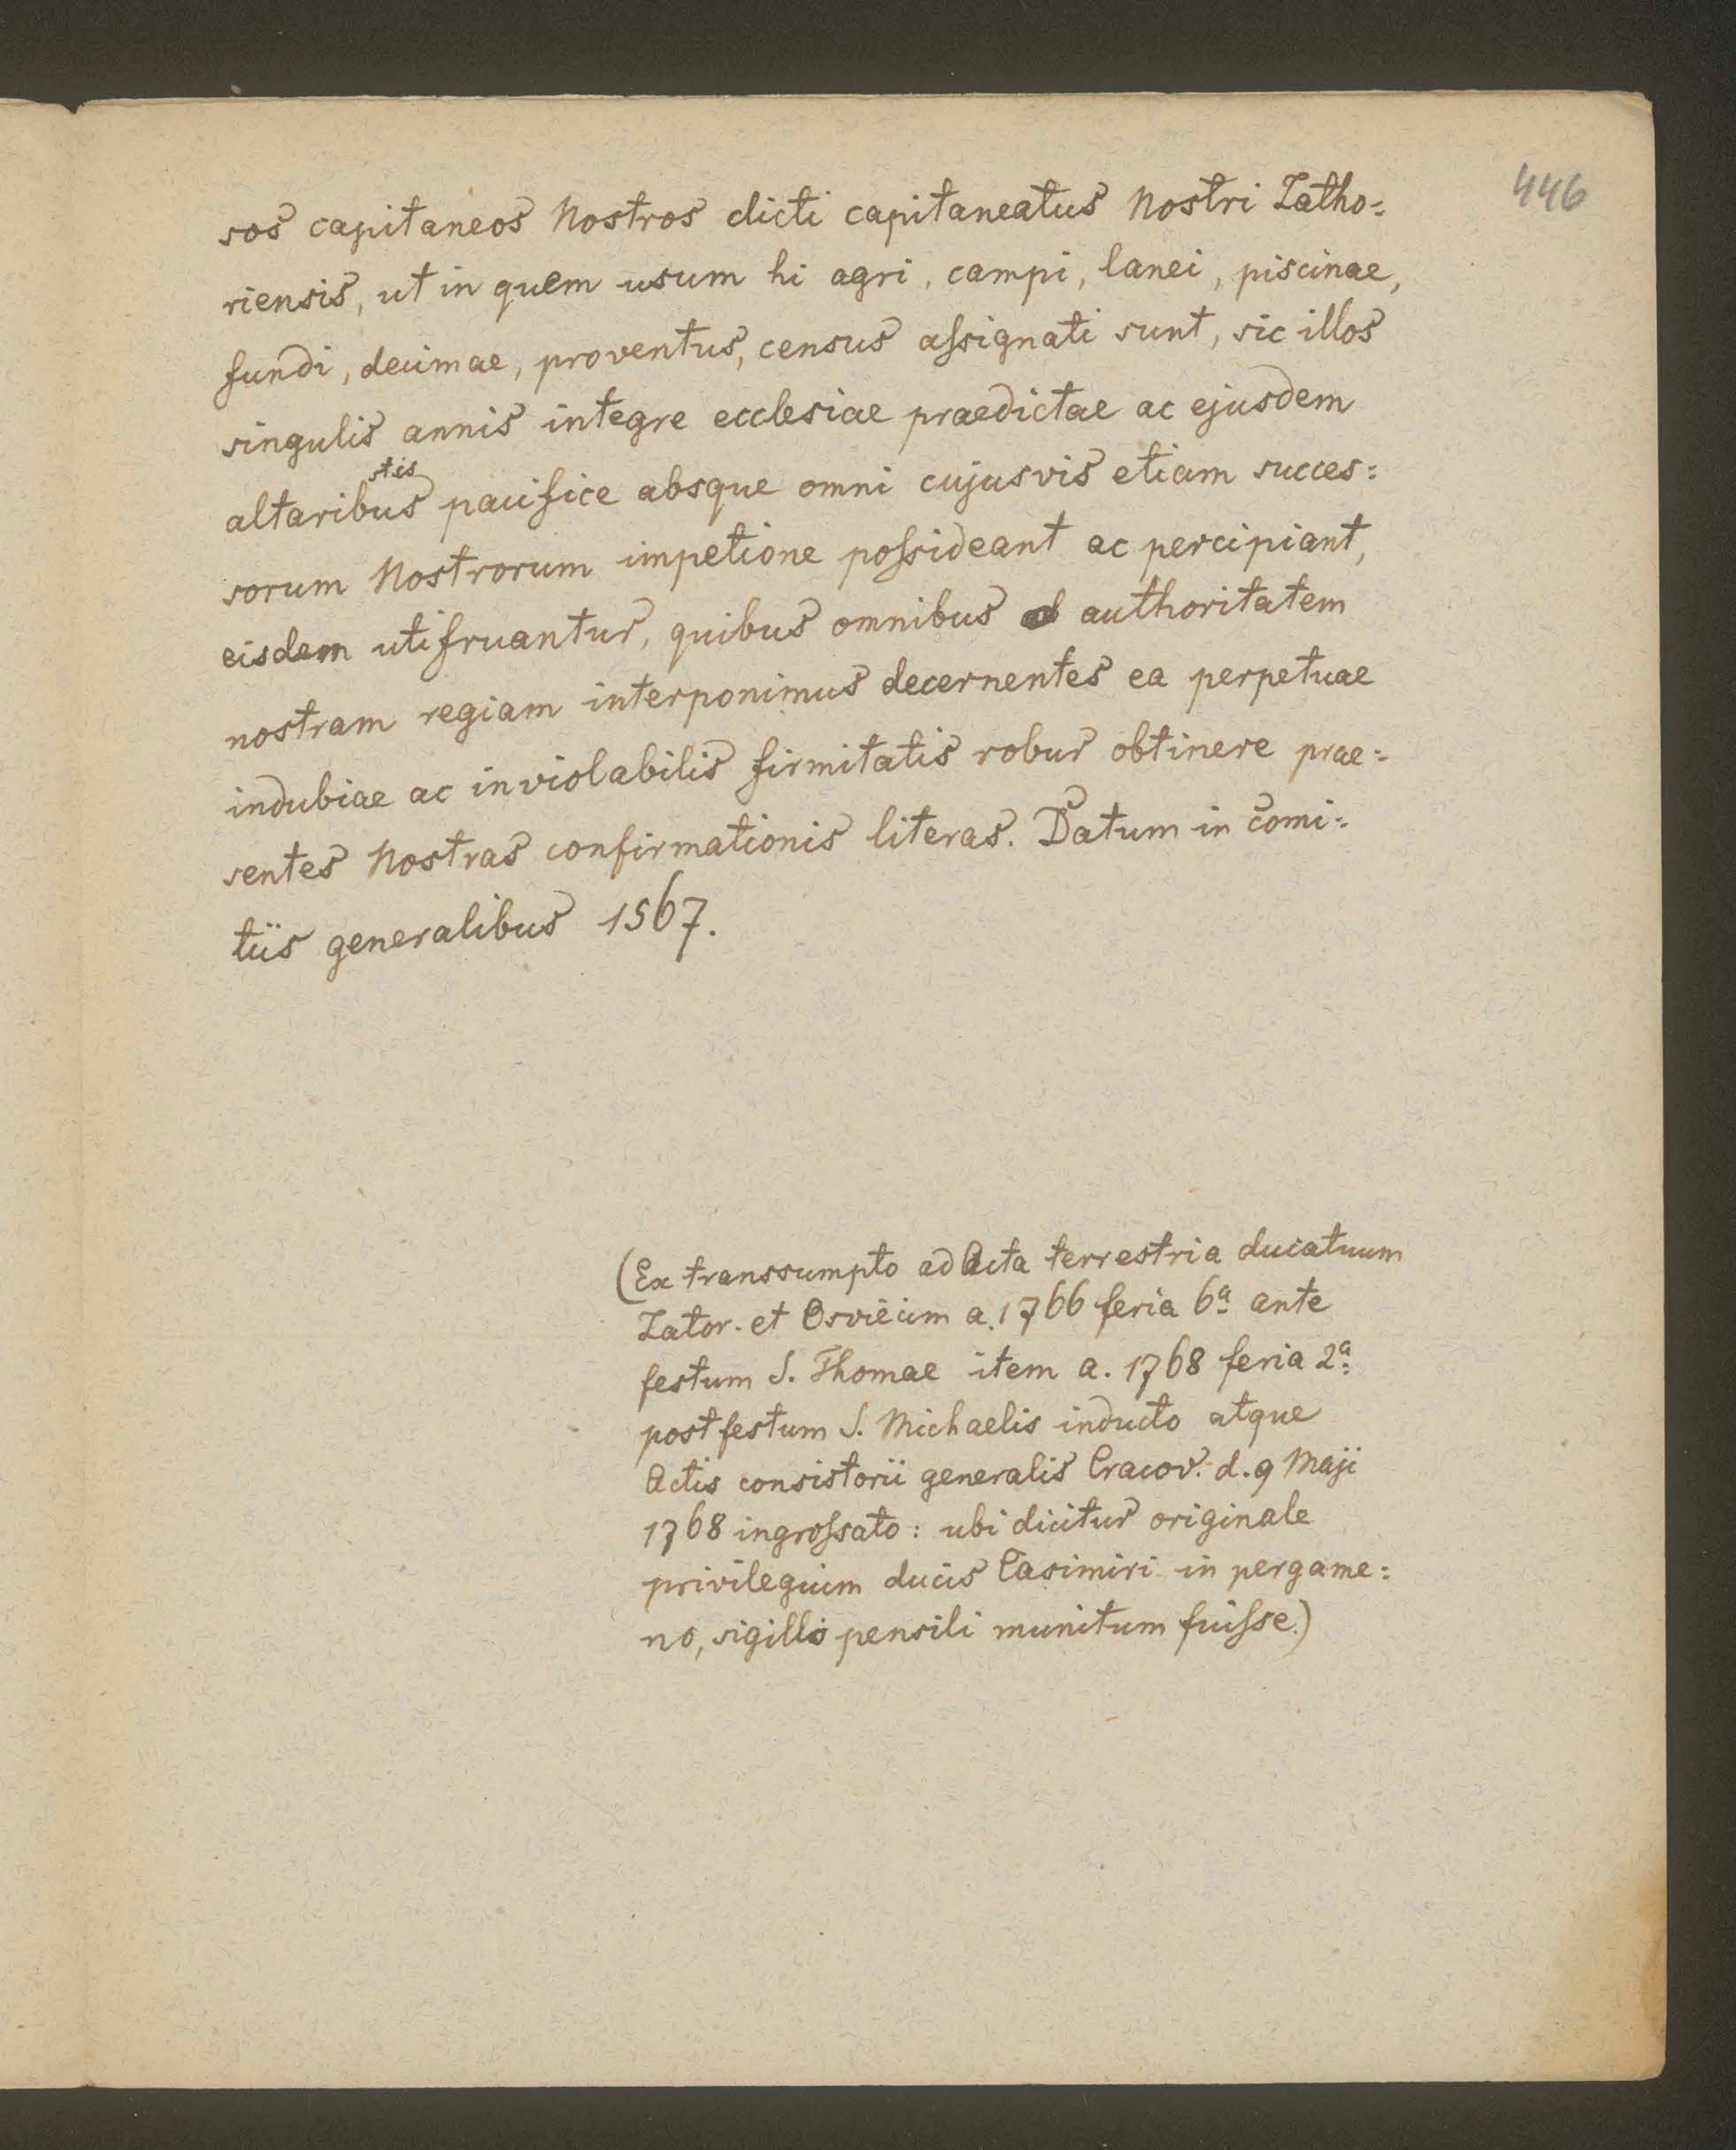 446
sos capitaneos Nostros dicti capitaneatus Nostri Zatho=
riensis, ut in quem usum hi agri, campi, lanei, piscinae,
fundi, decimae, proventus, census aſsignati sunt, sic illos
singulis annis integre ecclesiae praedictae ac ejusdem
stis
altaribus pacifice absque omni cujusvis etiam succes=
sorum Nostrorum impetione poſsideant ac percipiant,
eisdem utifruantur, quibus omnibus authoritatem
nostram regiam interponimus decernentes ea perpetuae
indubiae ac inviolabilis firmitatis robur obtinere prae=
sentes Nostras confirmationis literas. Datum in c̄omi=
tiis generalibus 1567.
(Ex transsumpto ad Acta terrestria ducatuum
Zator. et Osviecim a. 1766 feria 6a ante
festum S. Thomae item a. 1768 feria 2a
post festum S. Michaelis inducto atque
Actis consistorii generalis Cracov. d. 9 Maji
1768 ingroſsato: ubi dicitur originale
privilegium ducis Casimiri in pergame=
no, sigillo pensili munitum fuiſse.)